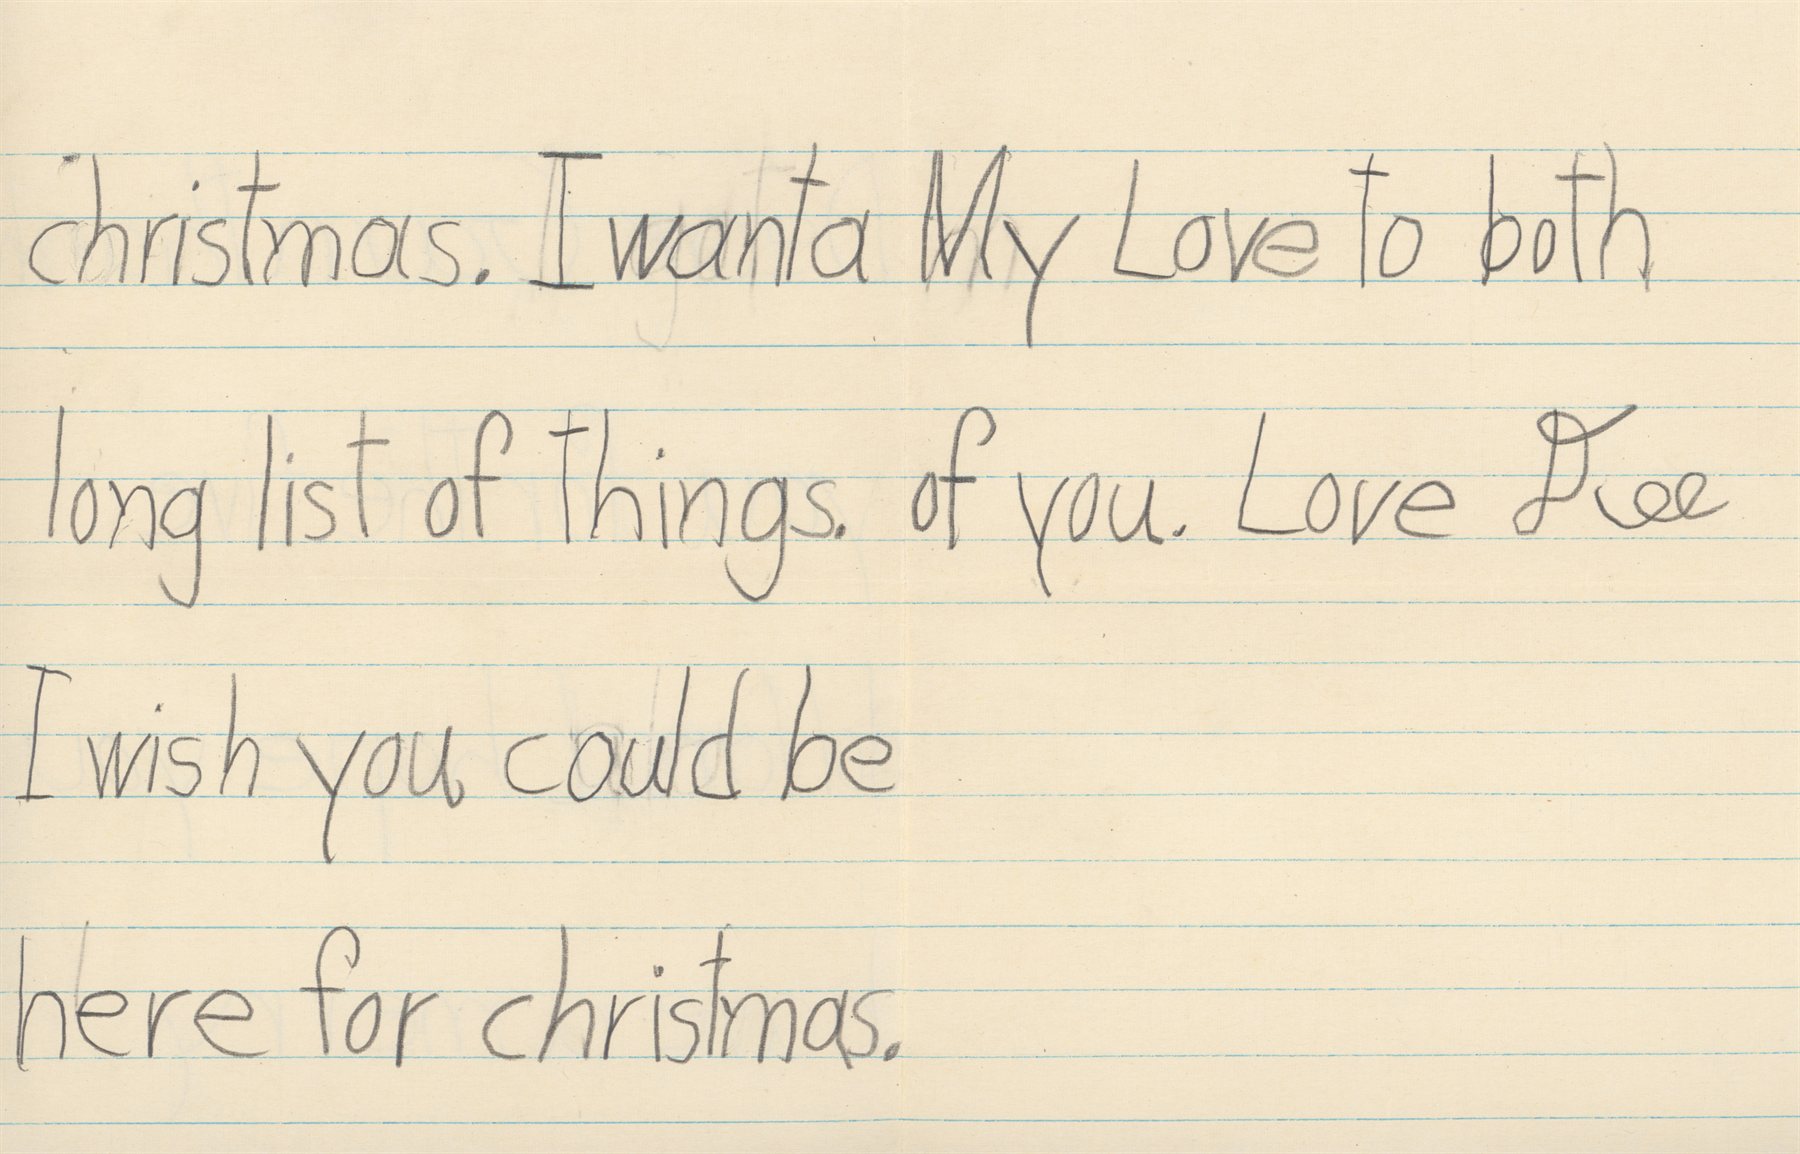 christmas. I wanta
long list of things.
I wish you could be
here for christmas.
My Love to both
of you. Love